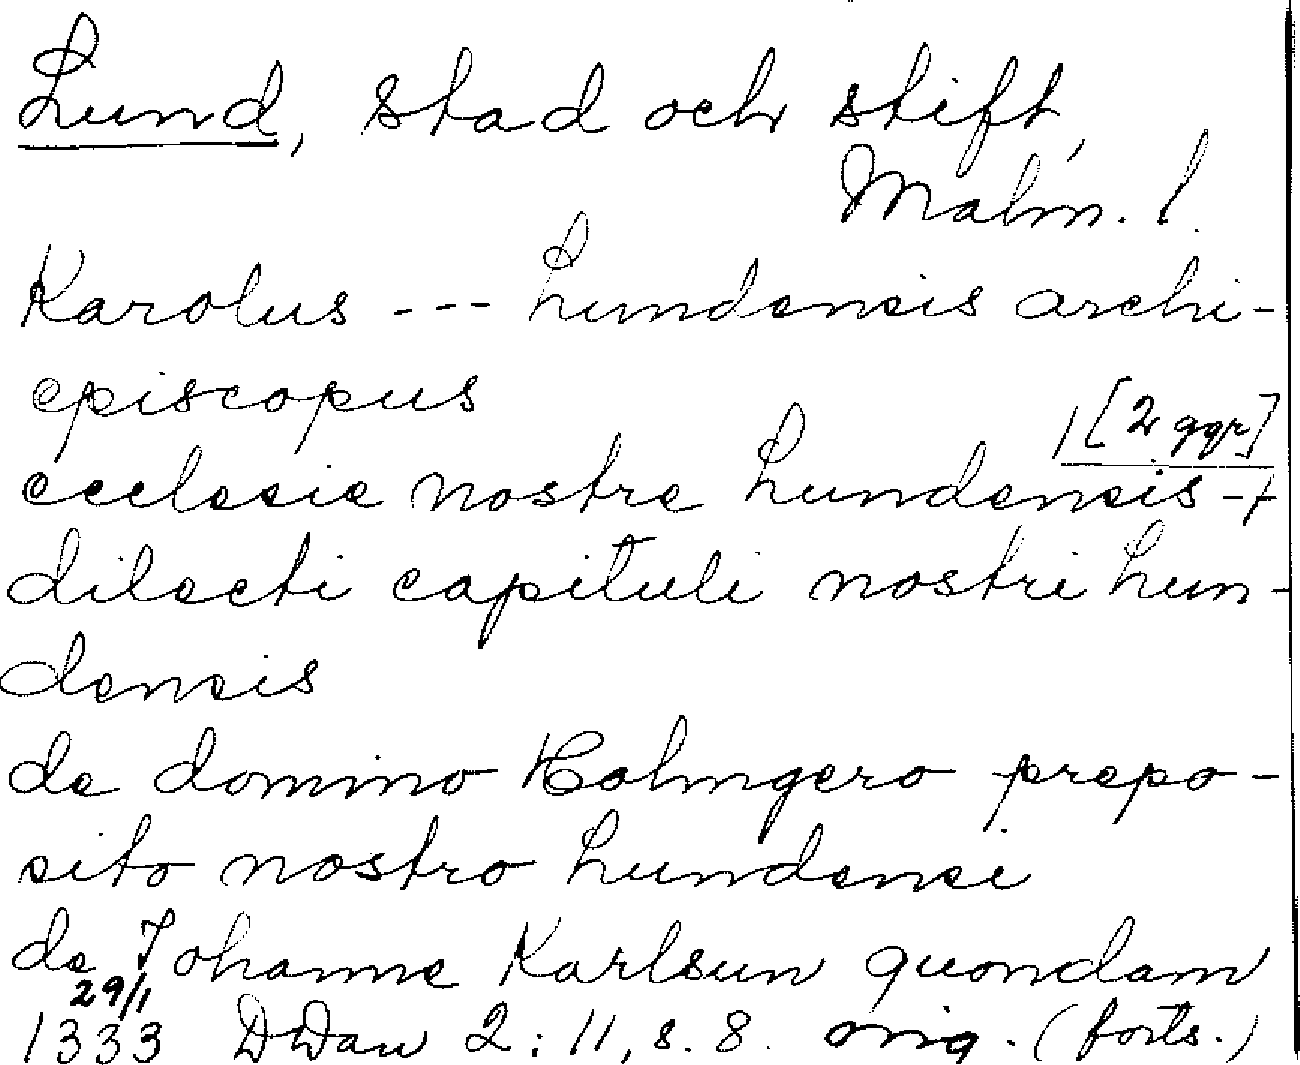 Lund, stad och stift,
Malm. l.
Karolus --- Lundensis archi-
episcopus
1 [2 ggr]
ecclesie nostre Lundensis -+
dilecti capituli nostri Lun-
densis
de domino Holmgero prepo-
sito nostro Lundensi
de Johanne Karlsun quondam
29/1
1333 DDan 2:11, s. 8. orig. (forts.)